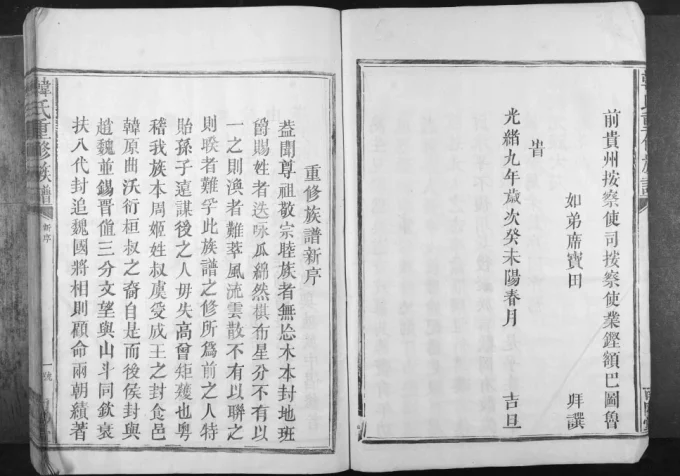 前貴州按察使司按察使業鏗額巴圖魯
如弟席寶田 拜譔
旹
光緒九年歲次癸未陽春月 吉旦
重修族譜新序
葢聞尊祖敬宗睦族者無忘木本封地班
爵賜姓者迭咏瓜綿然棋布星分不有以
一之則渙者難萃風流雲散不有以聯之
則睽者難孚此族譜之修所爲前之人特
貽孫子遠謀後之人毋失高曾矩矱也粵
稽我族本周姬姓叔虞受成王之封食邑
韓原曲沃衍桓叔之裔自是而後侯封與
趙魏並錫晋三分文望與山斗同欽衰
扶八代封追魏國將相則顧命兩朝績著
韓氏重修族譜
新序
一號